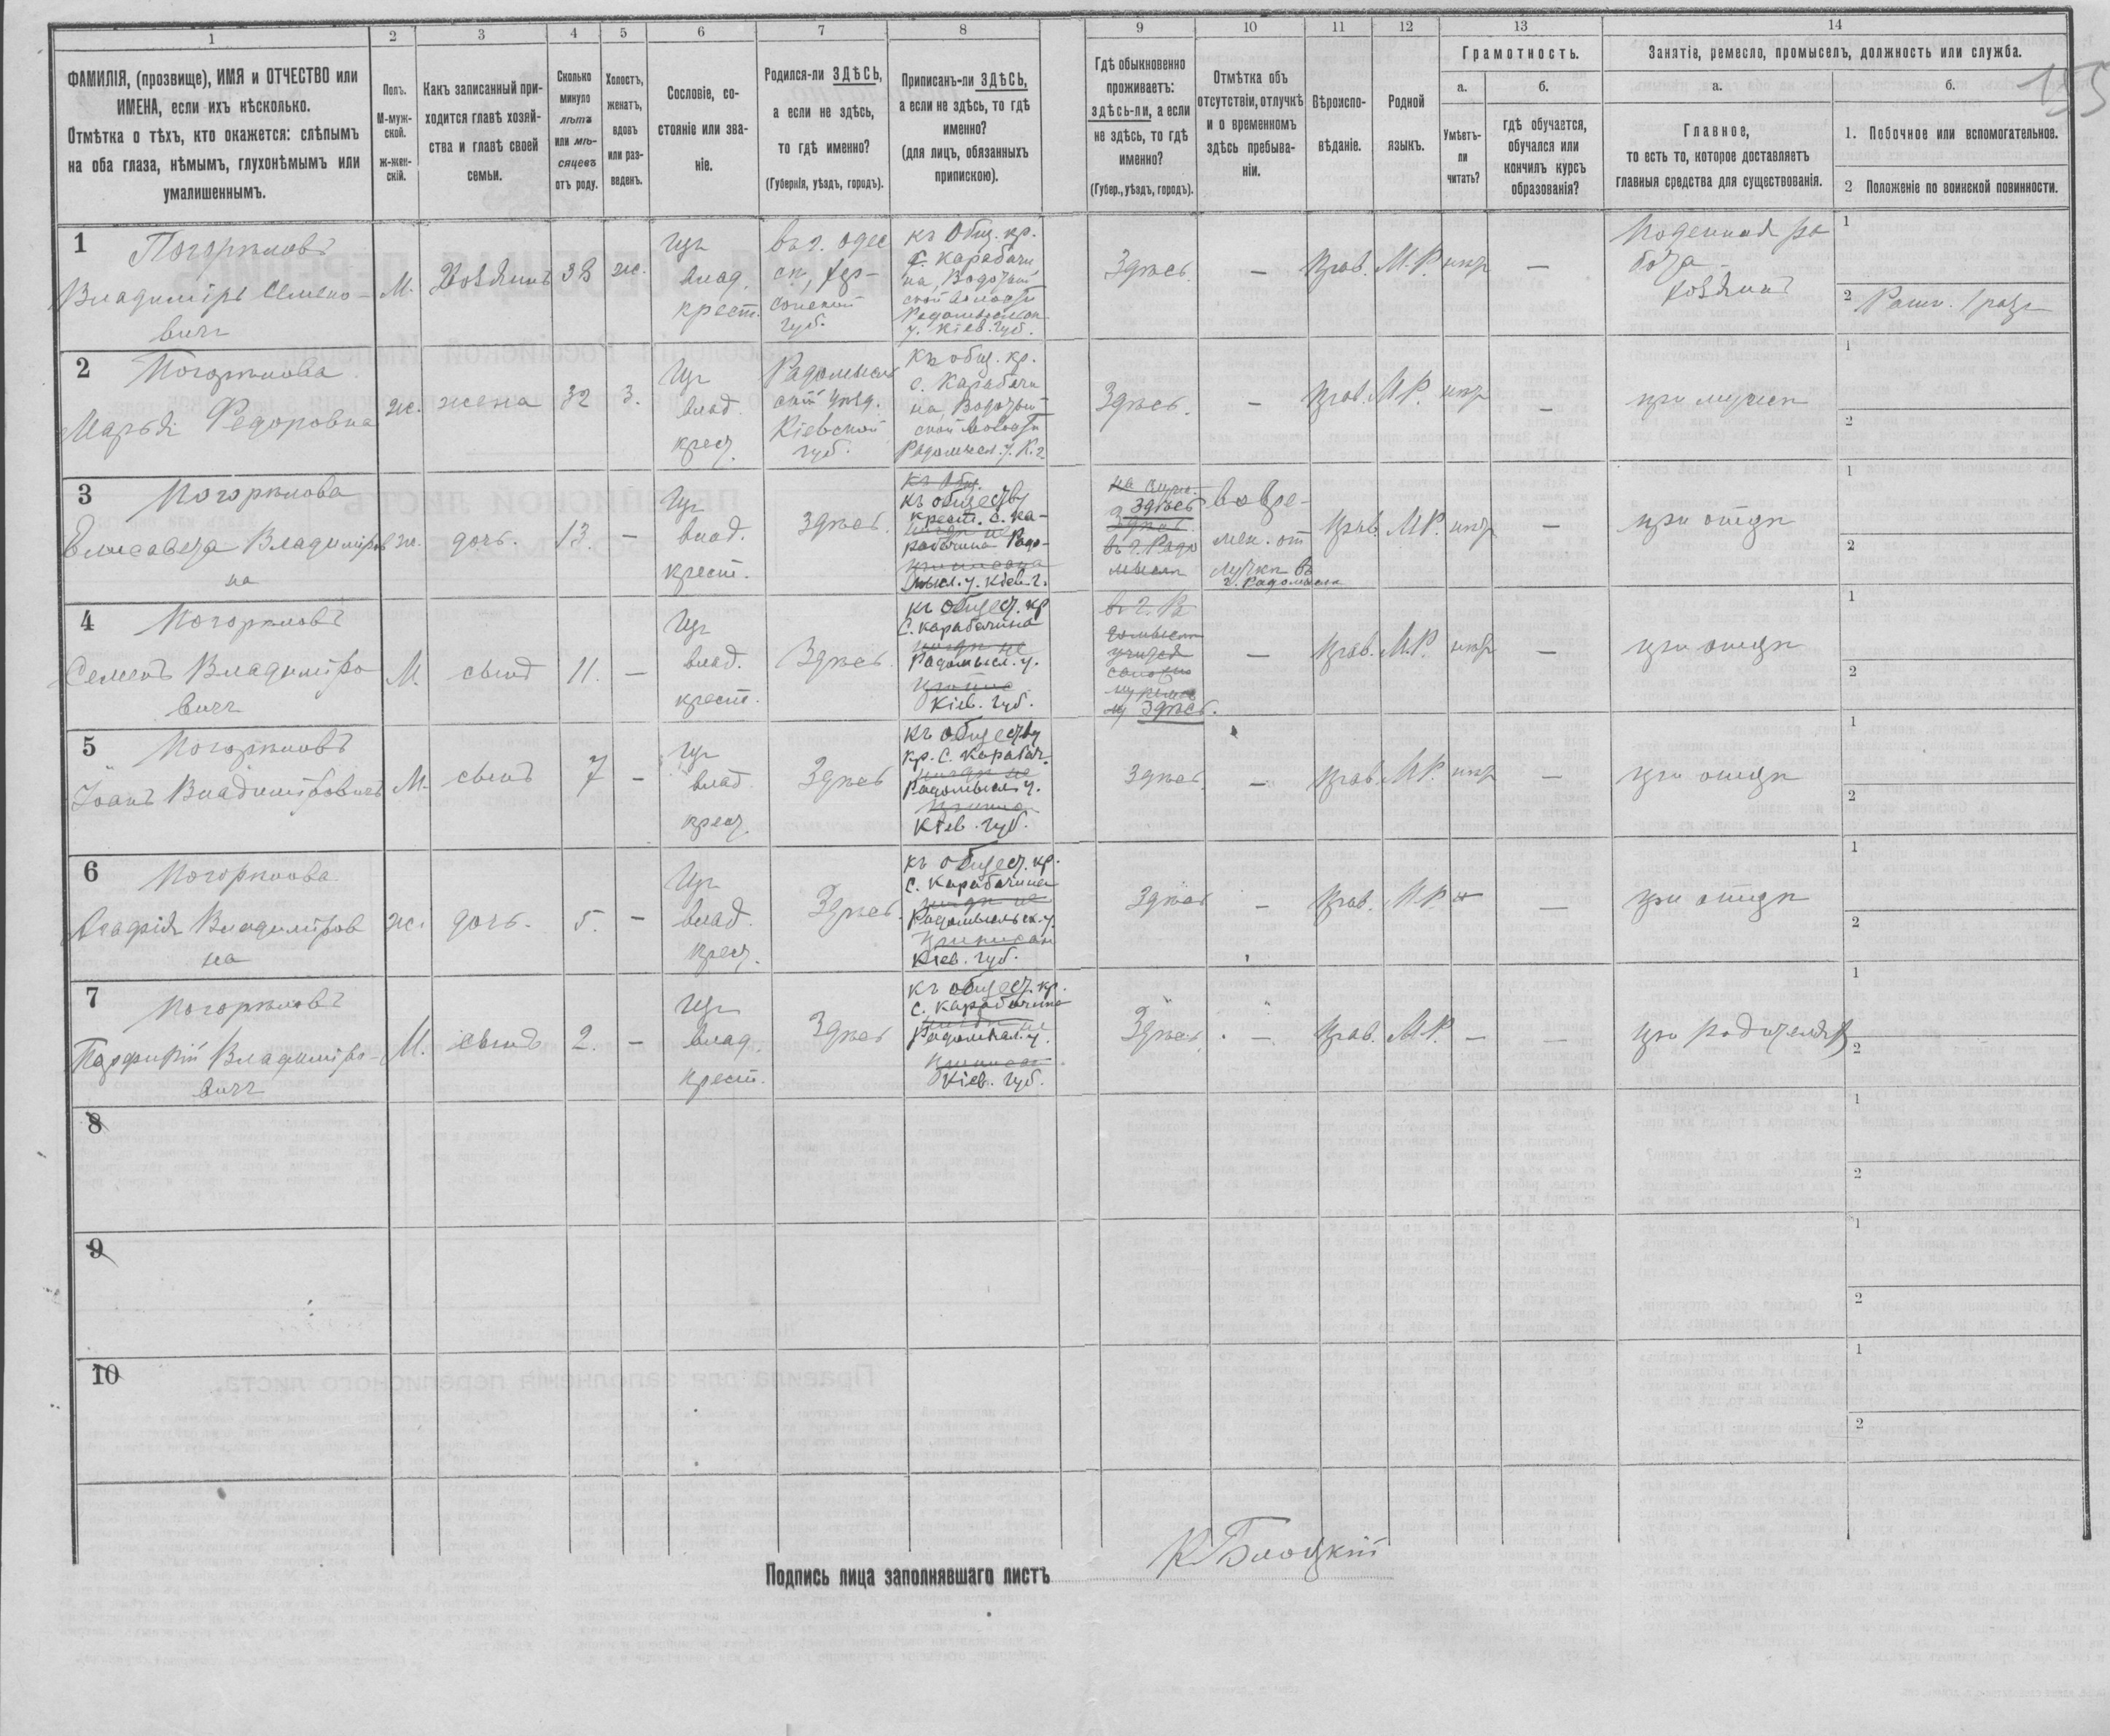 155
1
2
3
4
5
6
7
8
9
10
11
12
13
14
ФАМИЛІЯ, (прозвище), ИМЯ и ОТЧЕСТВО или
ИМЕНА, если ихъ нѣсколько.
Отмѣтка о тѣхъ, кто окажется: слѣпымъ
на оба глаза, нѣмымъ, глухонѣмымъ или
умалишеннымъ.
Полъ.
М-муж-
ской.
ж-жен-
скій.
Какъ записанный при-
ходится главѣ хозяй-
ства и главѣ своей
семьи.
Сколько
минуло
лѣтъ
или мѣ-
сяцевъ
отъ роду.
Холостъ,
женатъ,
вдовъ
или раз-
веденъ.
Сословіе, со-
стояніе или зва-
ніе.
Родился-ли ЗДѢСЬ,
а если не здѣсь,
то гдѣ именно?
(Губернія, уѣздъ, городъ).
Приписанъ-ли ЗДѢСЬ,
а если не здѣсь, то гдѣ
именно?
(для лицъ, обязанныхъ
припискою).
Гдѣ обыкновенно
проживаетъ:
здѣсь-ли, а если
не здѣсь, то гдѣ
именно?
(Губер., уѣздъ, городъ).
Отмѣтка объ
отсутствіи, отлучкѣ
и о временномъ
здѣсь пребыва-
ніи.
Вѣроиспо-
вѣданіе.
Родной
языкъ.
Грамотность.
а.
Умѣетъ-
ли
читать?
б.
гдѣ обучается,
обучался или
кончилъ курсъ
образованія?
Занятіе, ремесло, промыселъ, должность или служба.
а.
Главное,
то есть то, которое доставляетъ
главныя средства для существованія.
б.
1. Побочное или вспомогательное.
2 Положеніе по воинской повинности.
1
Погорѣловъ
Владиміръ Семено-
вичъ
М.
Хозяинъ
38
ж.
влад.
крест.
въ г. Одес
сѣ, Хер-
сонской
губ.
къ Общ. кр.
с. Карабачи
на,
Радомысльск
у. Кіев. губ.
Здѣсь
—
прав.
М.Р.
нѣтъ
—
Поденная ра
бота
хозяинъ
1
2
2
Погорѣлова
Марья Федоровна
ж.
жена
32
з.
влад.
крест.
Радомысль
скій уѣзд.
Кіевской
губ.
Къ общ. кр.
с. Карабачи
на,
Радомысл. у. К. г
Здѣсь.
—
прав.
М.Р.
нѣтъ
—
при мужѣ
1
2
3
Погорѣлова
Елисавета Владиміров
на
ж.
дочь.
13.
—
влад.
крест.
Здѣсь.
къ Общ.
къ обществу
крест. с. Ка-
рабачина Радо-
мысл. у. Кіев. г.
здѣсь
Здѣсь
въ г. Радо
мыслѣ
во вре-
мен. от
лучкѣ въ
г. Радомыслѣ
прав.
М.Р.
нѣтъ
—
при отцѣ
1
2
4
Погорѣловъ
Семенъ Владиміро
вичъ
М.
сынъ
11.
—
влад.
крест.
Здѣсь
къ общест. кр
с. Карабачина
Радомысл. у.
Кіев. губ.
въ г. Ра
домыслѣ
Здѣсь.
—
прав.
М.Р.
нѣтъ
—
при отцѣ
1
2
5
Погорѣловъ
Іоанъ Владиміровичъ
М.
сынъ
7
—
влад
крест.
Здѣсь
къ обществу
кр. с. Карабач.
Радомысл. у.
Кіев. губ.
Здѣсь
—
прав.
М.Р.
нѣтъ
—
при отцѣ
1
2
6
Погорѣлова
Агафія Владиміров
на
ж.
дочь.
5.
—
влад.
крест.
Здѣсь.
къ общест. кр.
с. Карабачина
Радомысльск. у.
Кіев. губ.
Здѣсь
—
прав.
М.Р.
—
при отцѣ
1
2
7
Погорѣловъ
Порфирій Владиміро-
вичъ
М.
сынъ
2.
—
влад.
крест.
Здѣсь
къ общест. кр.
с. Карабачина
Радомысл. у.
Кіев. губ.
Здѣсь
—
прав.
М.Р.
—
—
при родителях
1
2
8
1
2
9
1
2
10
1
2
Подпись лица заполнявшаго листъ